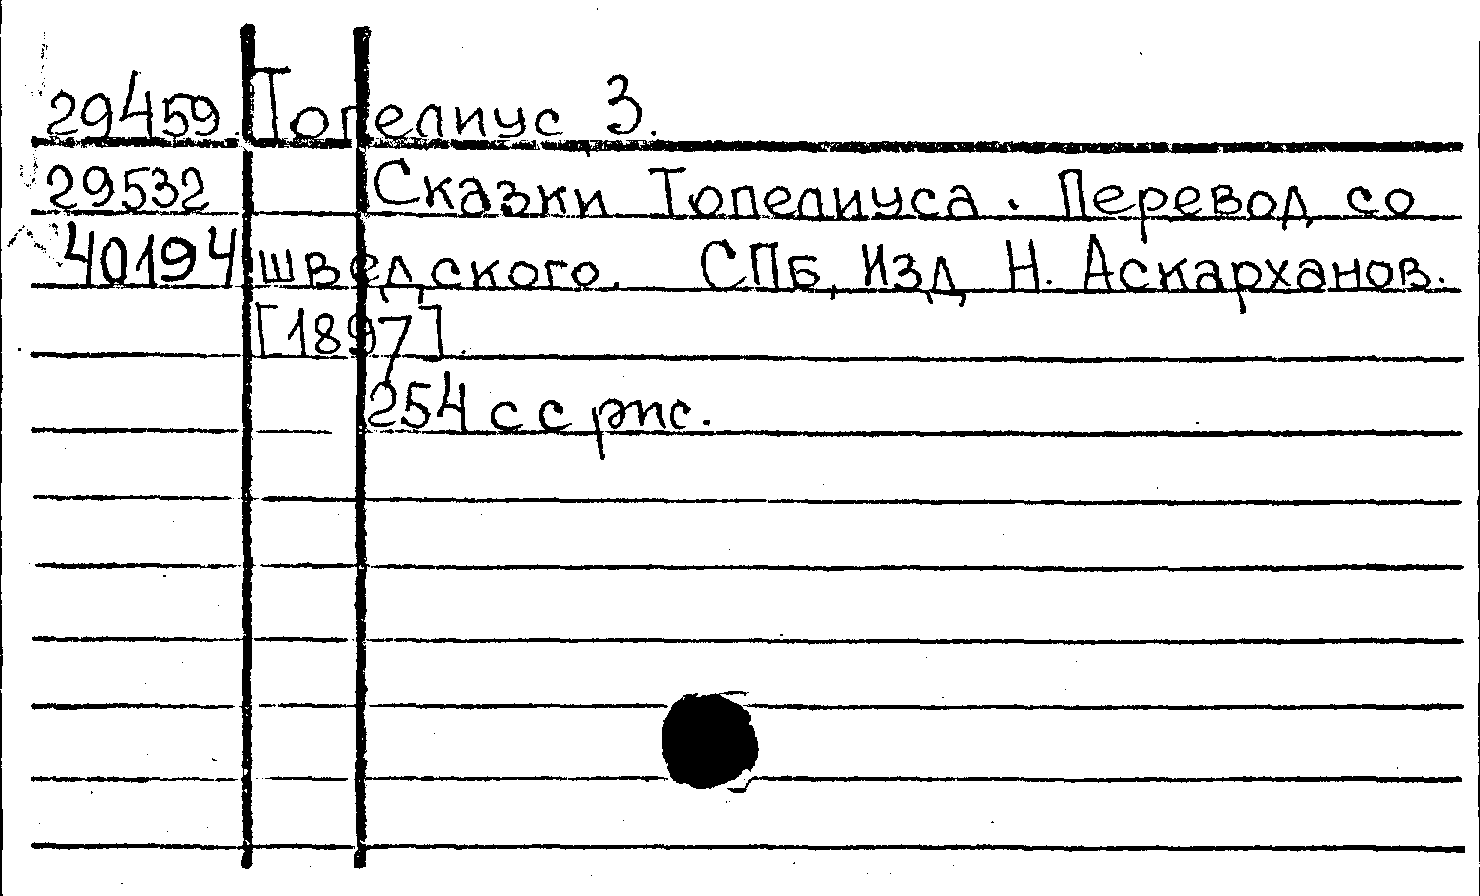 29459 Топелиус З.
29532 Сказки Топелиуса. Перевод со
40194 шведского. СПб, Изд Н. Аскарханов.
[1897]
254 с с рис.